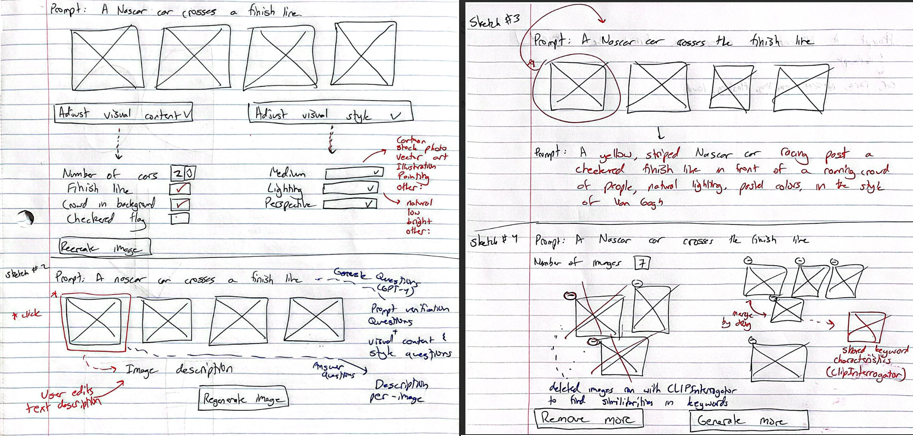 Prompt: A Nascar car crosses a finish line
Adjust visual content
Adjust visual style
Number of cars 2
Finish line
Crowd in background
Checkered flag
Recreate image
Medium
Lighting
Perspective
Cartoon
Stock photo
Vector art
Illustration
Painting
other:
natural
low
bright
other:
Sketch #2
Prompt: A nascar car crosses a finish line
Generate Questions
(GPT-4)
* click
Prompt verification
Questions
+
visual content &
style questions
Answer
questions
Description
per-image
Image description
User edits
text description
Regenerate image
Sketch #3
Prompt: A Nascar car crosses the finish line
Prompt: A yellow, striped Nascar car racing past a
checkered finish line in front of a roaring crowd
of people, natural lighting, pastel colors, in the style
of Van Gogh
Sketch #4
Prompt: A Nascar car crosses the finish line
Number of images 7
merge
by drag
shared keyword
characteristics
(ClipInterrogator)
deleted images run with CLIPInterrogator
to find similarities in keywords
Remove more
Generate more